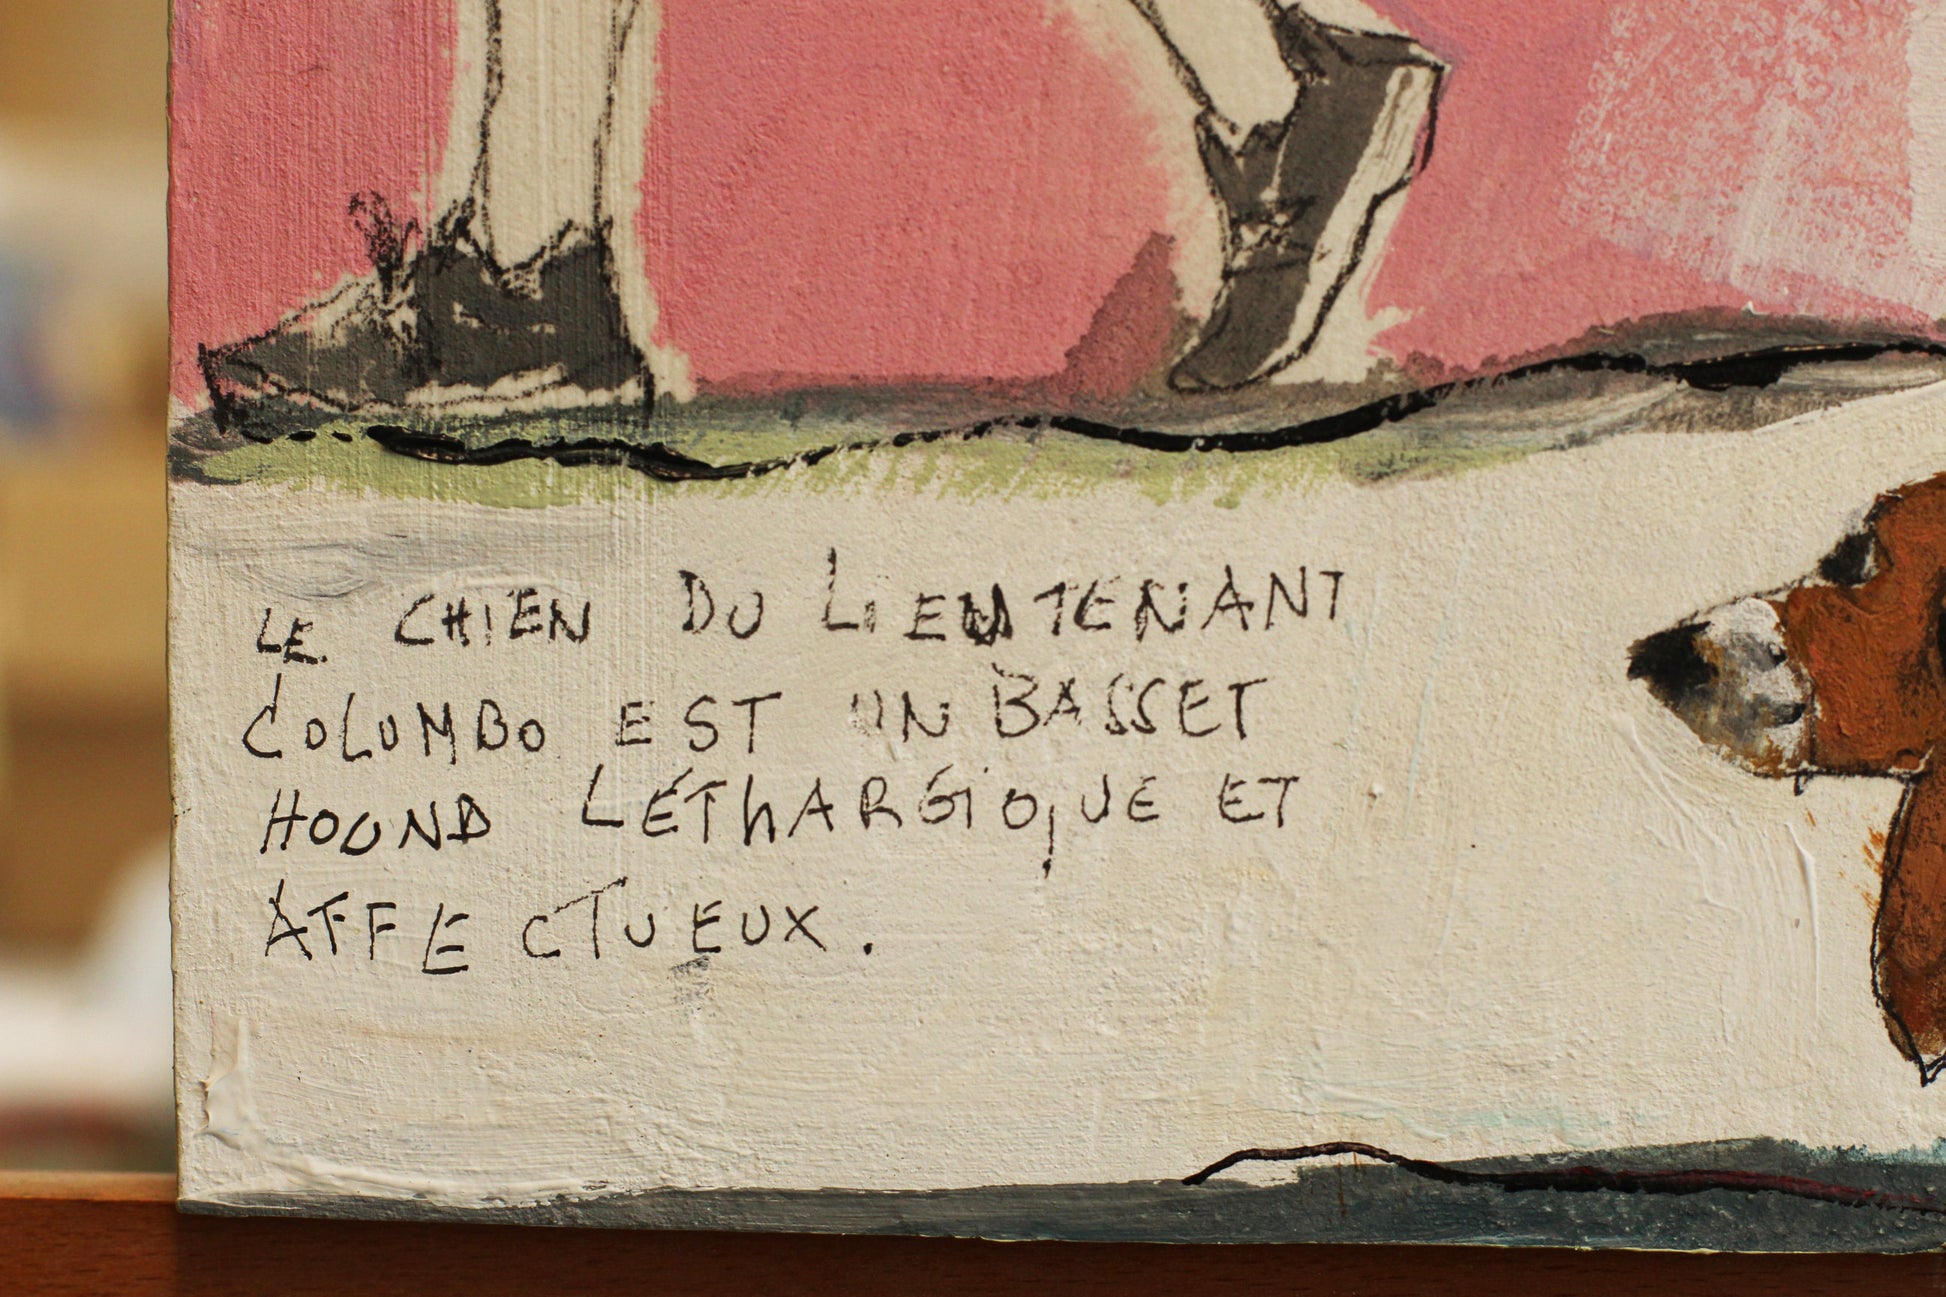 LE CHIEN DU LIEUTENANT
COLUMBO EST UN BASSET
HOUND LÉThARGIQUE ET
AFFECTUEUX.